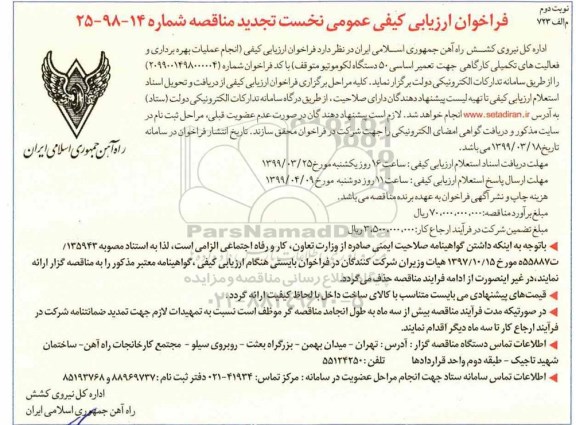 نوبت دوم
م الف ۷۲۳
فراخوان ارزیابی کیفی عمومی نخست تجدید مناقصه شماره ۱۴-۹۸-۲۵
اداره کل نیروی کشش راه آهن جمهوری اسلامی ایران در نظر دارد فراخوان ارزیابی کیفی (انجام عملیات بهره برداری و
فعالیت های تکمیلی کارگاهی جهت تعمیر اساسی ۵۰ دستگاه لکوموتیو متوقف) با کد فراخوان شماره (۲۰۹۹۰۰۱۴۹۸۰۰۰۰۰۴)
را از طریق سامانه تدارکات الکترونیکی دولت برگزار نماید. کلیه مراحل برگزاری فراخوان ارزیابی کیفی از دریافت و تحویل اسناد
استعلام ارزیابی کیفی تا تهیه لیست پیشنهاد دهندگان دارای صلاحیت، از طریق درگاه سامانه تدارکات الکترونیکی دولت (ستاد)
به آدرس www.setadiran.ir انجام خواهد شد. لازم است پیشنهاد دهندگان در صورت عدم عضویت قبلی، مراحل ثبت نام در
سایت مذکور و دریافت گواهی امضای الکترونیکی را جهت شرکت در فراخوان محقق سازند. تاریخ انتشار فراخوان در سامانه
تاریخ ۱۳۹۹/۰۳/۱۸ می باشد.
راه آهن جمهوری اسلامی ایران
مهلت دریافت اسناد استعلام ارزیابی کیفی: ساعت ۱۶ روز یکشنبه مورخ ۱۳۹۹/۰۳/۲۵
مهلت ارسال پاسخ استعلام ارزیابی کیفی: ساعت ۱۱ روز دوشنبه مورخ ۱۳۹۹/۰۴/۰۹
هزینه چاپ و نشر آگهی فراخوان به عهده برنده مناقصه می باشد.
مبلغ برآورد مناقصه: ۷۰,۰۰۰,۰۰۰,۰۰۰ ریال
مبلغ تضمین شرکت در فرآیند ارجاع کار: ۳,۵۰۰,۰۰۰,۰۰۰ ریال
باتوجه به اینکه داشتن گواهینامه صلاحیت ایمنی صادره از وزارت تعاون، کار و رفاه اجتماعی الزامی است، لذا به استناد مصوبه ۱۳۵۹۴۳/
ت۵۵۸۸۷ه مورخ ۱۳۹۷/۱۰/۱۵ هیات وزیران شرکت کنندگان در فراخوان بایستی هنگام ارزیابی کیفی، گواهینامه معتبر مذکور را به مناقصه گزار ارائه
نمایند، در غیر اینصورت از ادامه فرایند مناقصه حذف می گردد.
قیمت های پیشنهادی می بایست متناسب با کالای ساخت داخل با لحاظ کیفیت ارائه گردد.
در صورتیکه مدت فرآیند مناقصه بیش از سه ماه به طول انجامد مناقصه گر موظف است نسبت به تمهیدات لازم جهت تمدید ضمانتنامه شرکت در
فرآیند ارجاع کار تا سه ماه دیگر اقدام نمایند.
اطلاعات تماس دستگاه مناقصه گزار: آدرس: تهران - میدان بهمن - بزرگراه بعثت - روبروی سیلو - مجتمع کارخانجات راه آهن - ساختمان
شهید تاجیک - طبقه دوم واحد قراردادها تلفن: ۵۵۱۲۴۲۵۰
اطلاعات تماس سامانه ستاد جهت انجام مراحل عضویت در سامانه: مرکز تماس: ۴۱۹۳۴-۰۲۱ دفتر ثبت نام: ۸۸۹۶۹۷۳۷ و ۸۵۱۹۳۷۶۸
اداره کل نیروی کشش
راه آهن جمهوری اسلامی ایران
ParsNamadData